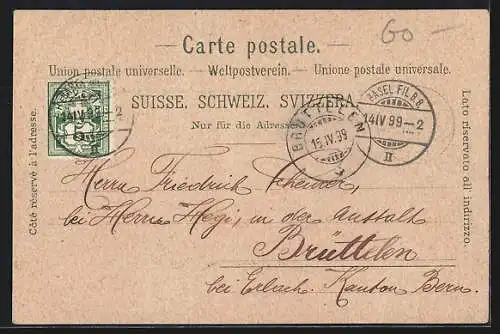 Go —
Carte postale.
Union postale universelle. — Weltpostverein. — Unione postale universale.
SUISSE. SCHWEIZ. SVIZZERA.
Nur für die Adresse.
Côté réservé à l'adresse.
Lato riservato all' indirizzo.
BASEL FIL. B.B.
14 IV 99 - 2
II
BRÜTTELEN
15 IV 99
Herrn Friedrich Scheurer,
bei Herrn Hegi, in der Anstalt
Brüttelen
bei Erlach. Kanton Bern.